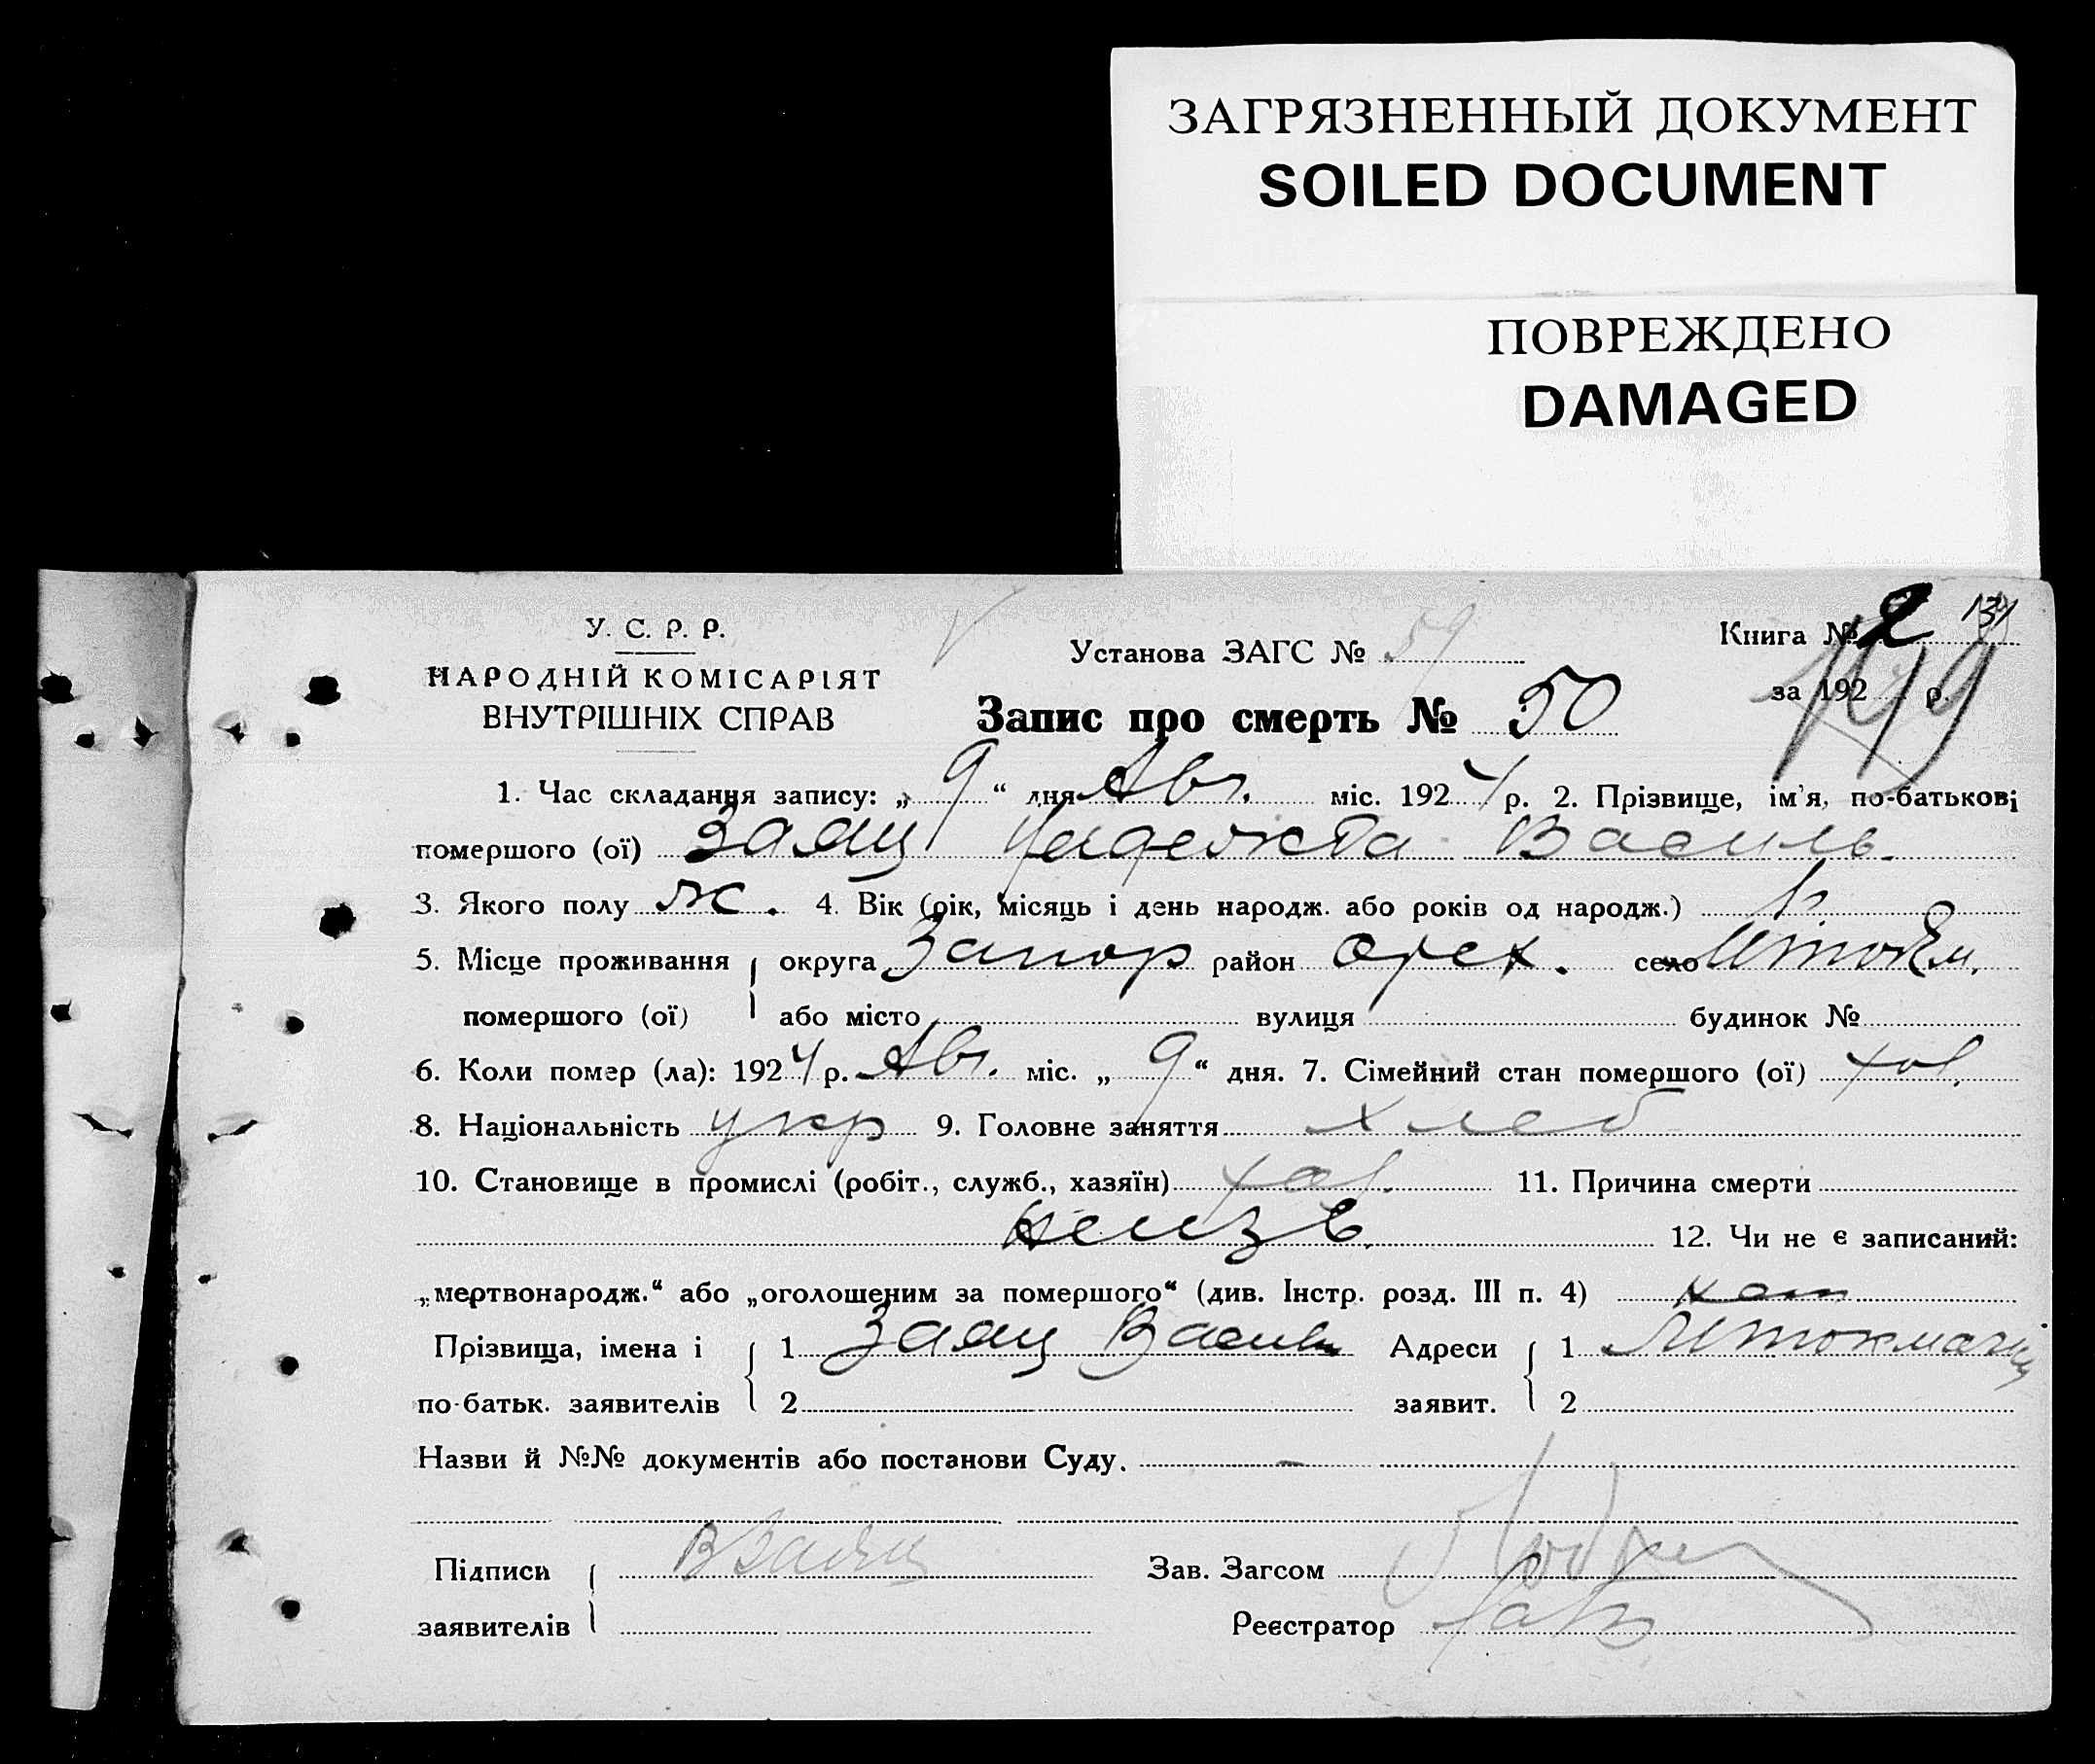 ЗАГРЯЗНЕННЫЙ ДОКУМЕНТ
SOILED DOCUMENT
ПОВРЕЖДЕНО
DAMAGED
У. С. Р. Р.
НАРОДНІЙ КОМІСАРІЯТ
ВНУТРІШНІХ СПРАВ
Установа ЗАГС № 59
Книга № 2
за 192 р.
Запис про смерть № 50
1. Час складання запису: „ 9 “ дня Авг. міс. 1924 р. 2. Прізвище, ім'я, по-батькові
помершого (ої) Заяц Надежда Василь.
3. Якого полу ж. 4. Вік (рік, місяць і день народж. або років од народж.)
5. Місце проживання округа Запор район Орех. село
помершого (ої) або місто вулиця будинок №
6. Коли помер (ла): 1924 р. Авг. міс. „ 9 “ дня. 7. Сімейний стан помершого (ої) хол.
8. Національність укр 9. Головне заняття хлеб
10. Становище в промислі (робіт., служб., хазяїн) 11. Причина смерти
неизв. 12. Чи не є записаний:
„мертвонародж.“ або „оголошеним за помершого“ (див. Інстр. розд. III п. 4)
Прізвища, імена і 1 Заяц Василь Адреси 1
по-батьк. заявителів 2 заявит. 2
Назви й №№ документів або постанови Суду. —
Підписи ВЗаяц Зав. Загсом
заявителів Реєстратор